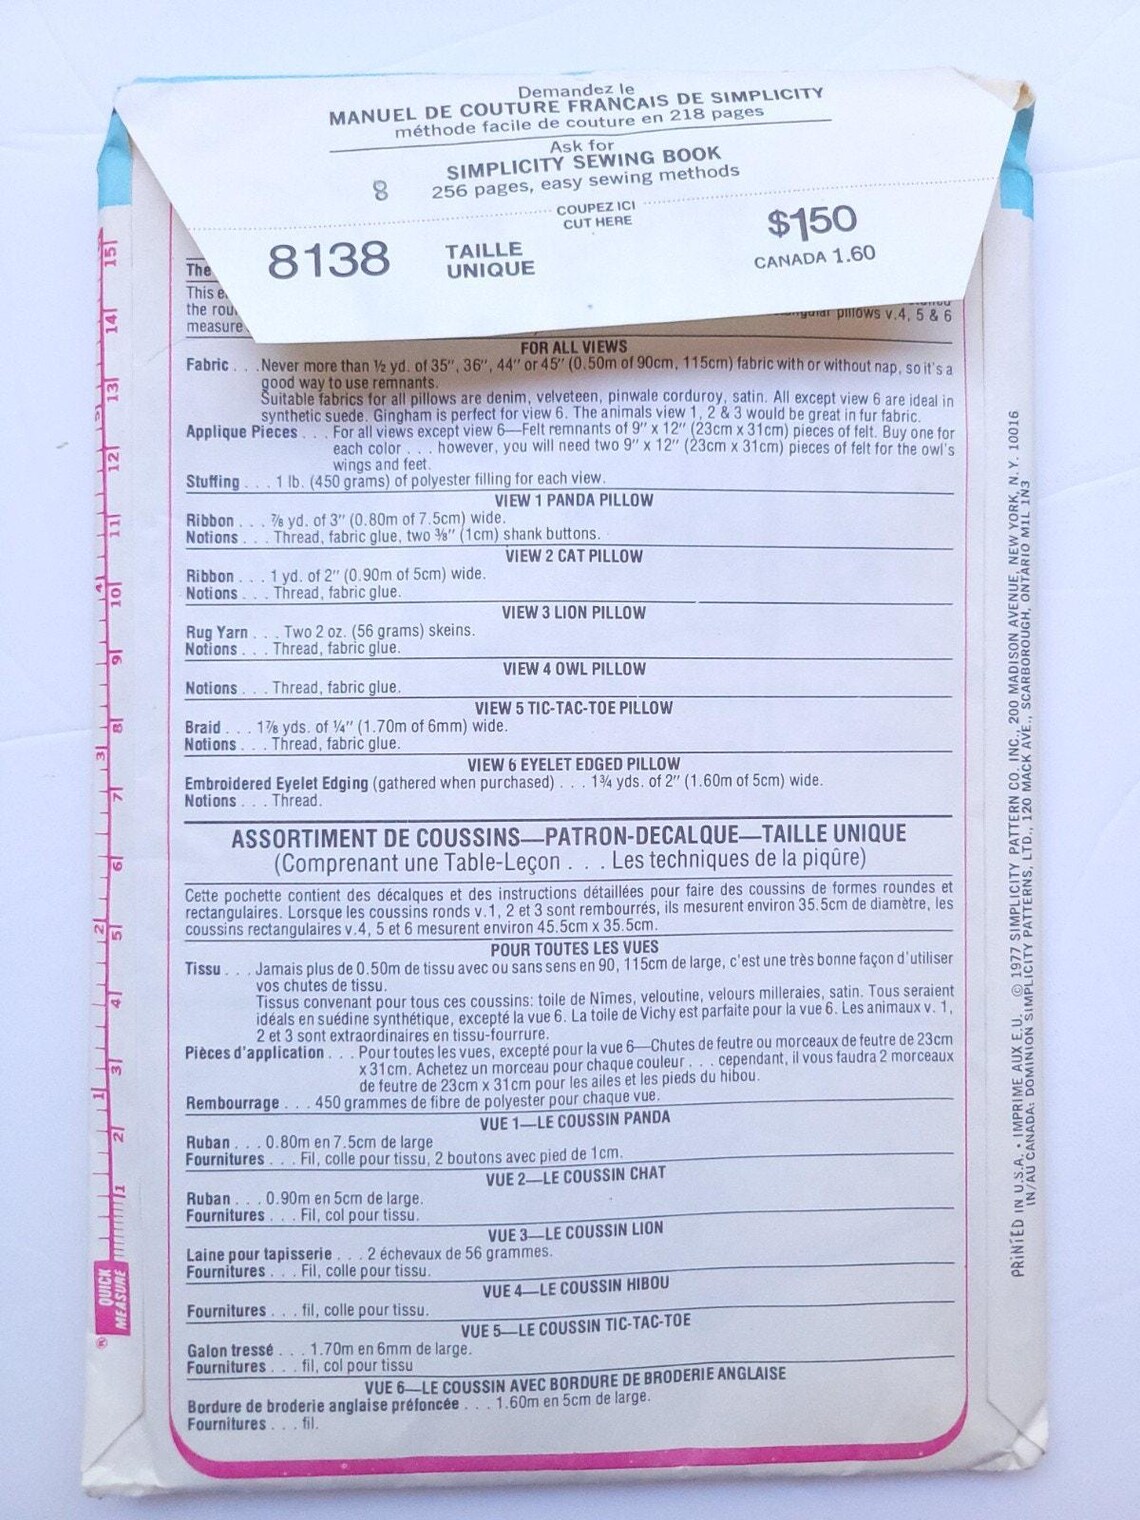 Demandez le
MANUEL DE COUTURE FRANCAIS DE SIMPLICITY
méthode facile de couture en 218 pages
Ask for
SIMPLICITY SEWING BOOK
256 pages, easy sewing methods
8
COUPEZ ICI
CUT HERE
8138
TAILLE
UNIQUE
$1.50
CANADA 1.60
The
This
the
measure
pillows v.4, 5 & 6
FOR ALL VIEWS
Fabric . . . Never more than ½ yd. of 35", 36", 44" or 45" (0.50m of 90cm, 115cm) fabric with or without nap, so it's a
good way to use remnants.
Suitable fabrics for all pillows are denim, velveteen, pinwale corduroy, satin. All except view 6 are ideal in
synthetic suede. Gingham is perfect for view 6. The animals view 1, 2 & 3 would be great in fur fabric.
Applique Pieces . . . For all views except view 6—Felt remnants of 9" x 12" (23cm x 31cm) pieces of felt. Buy one for
each color . . . however, you will need two 9" x 12" (23cm x 31cm) pieces of felt for the owl's
wings and feet.
Stuffing . . . 1 lb. (450 grams) of polyester filling for each view.
VIEW 1 PANDA PILLOW
Ribbon . . . ⅞ yd. of 3" (0.80m of 7.5cm) wide.
Notions . . . Thread, fabric glue, two ⅜" (1cm) shank buttons.
VIEW 2 CAT PILLOW
Ribbon . . . 1 yd. of 2" (0.90m of 5cm) wide.
Notions . . . Thread, fabric glue.
VIEW 3 LION PILLOW
Rug Yarn . . . Two 2 oz. (56 grams) skeins.
Notions . . . Thread, fabric glue.
VIEW 4 OWL PILLOW
Notions . . . Thread, fabric glue.
VIEW 5 TIC-TAC-TOE PILLOW
Braid . . . 1⅞ yds. of ¼" (1.70m of 6mm) wide.
Notions . . . Thread, fabric glue.
VIEW 6 EYELET EDGED PILLOW
Embroidered Eyelet Edging (gathered when purchased) . . . 1¾ yds. of 2" (1.60m of 5cm) wide.
Notions . . . Thread.
ASSORTIMENT DE COUSSINS—PATRON-DECALQUE—TAILLE UNIQUE
(Comprenant une Table-Leçon . . . Les techniques de la piqûre)
Cette pochette contient des décalques et des instructions détaillées pour faire des coussins de formes roundes et
rectangulaires. Lorsque les coussins ronds v.1, 2 et 3 sont rembourrés, ils mesurent environ 35.5cm de diamètre, les
coussins rectangulaires v.4, 5 et 6 mesurent environ 45.5cm x 35.5cm.
POUR TOUTES LES VUES
Tissu . . . Jamais plus de 0.50m de tissu avec ou sans sens en 90, 115cm de large, c'est une très bonne façon d'utiliser
vos chutes de tissu.
Tissus convenant pour tous ces coussins: toile de Nîmes, veloutine, velours milleraies, satin. Tous seraient
idéals en suédine synthétique, excepté la vue 6. La toile de Vichy est parfaite pour la vue 6. Les animaux v. 1,
2 et 3 sont extraordinaires en tissu-fourrure.
Pièces d'application . . . Pour toutes les vues, excepté pour la vue 6—Chutes de feutre ou morceaux de feutre de 23cm
x 31cm. Achetez un morceau pour chaque couleur . . . cependant, il vous faudra 2 morceaux
de feutre de 23cm x 31cm pour les ailes et les pieds du hibou.
Rembourrage . . . 450 grammes de fibre de polyester pour chaque vue.
VUE 1—LE COUSSIN PANDA
Ruban . . . 0.80m en 7.5cm de large
Fournitures . . . Fil, colle pour tissu, 2 boutons avec pied de 1cm.
VUE 2—LE COUSSIN CHAT
Ruban . . . 0.90m en 5cm de large.
Fournitures . . . Fil, col pour tissu.
VUE 3—LE COUSSIN LION
Laine pour tapisserie . . . 2 échevaux de 56 grammes.
Fournitures . . . Fil, colle pour tissu.
VUE 4—LE COUSSIN HIBOU
Fournitures . . . fil, colle pour tissu.
VUE 5—LE COUSSIN TIC-TAC-TOE
Galon tressé . . . 1.70m en 6mm de large.
Fournitures . . . fil, col pour tissu
VUE 6—LE COUSSIN AVEC BORDURE DE BRODERIE ANGLAISE
Bordure de broderie anglaise préfoncée . . . 1.60m en 5cm de large.
Fournitures . . . fil.
15
14
13
5
12
11
4
10
9
8
3
7
6
2
5
4
3
1
2
1
QUICK
MEASURE
®
PRINTED IN U.S.A. • IMPRIME AUX E.U. © 1977 SIMPLICITY PATTERN CO. INC., 200 MADISON AVENUE, NEW YORK, N.Y. 10016
IN/AU CANADA: DOMINION SIMPLICITY PATTERNS, LTD., 120 MACK AVE., SCARBOROUGH, ONTARIO M1L 1N3